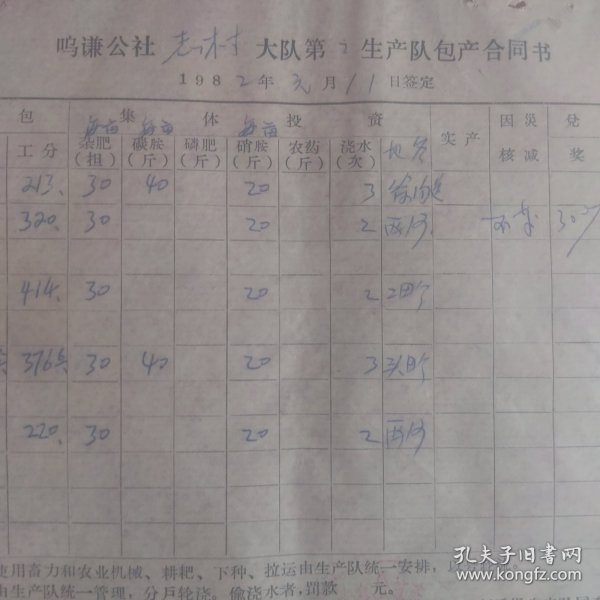 呜谦公社 志村 大队第2生产队包产合同书
1982年元月11日签定
包 集体投资 实产 因灾核减 兑奖
每亩 每亩 每亩
工分 杂肥(担) 碳胺(斤) 磷肥(斤) 硝胺(斤) 农药(斤) 浇水(次) 地名
213. 30 40 20 3
320. 30 20 2 西河
414. 30 20 2
376 30 40 20 3
220. 30 20 2 西河
使用畜力和农业机械、耕耙、下种、拉运由生产队统一安排,
由生产队统一管理,分户轮浇。偷浇水者,罚款 元。
孔夫子旧书网
www.kongfz.com